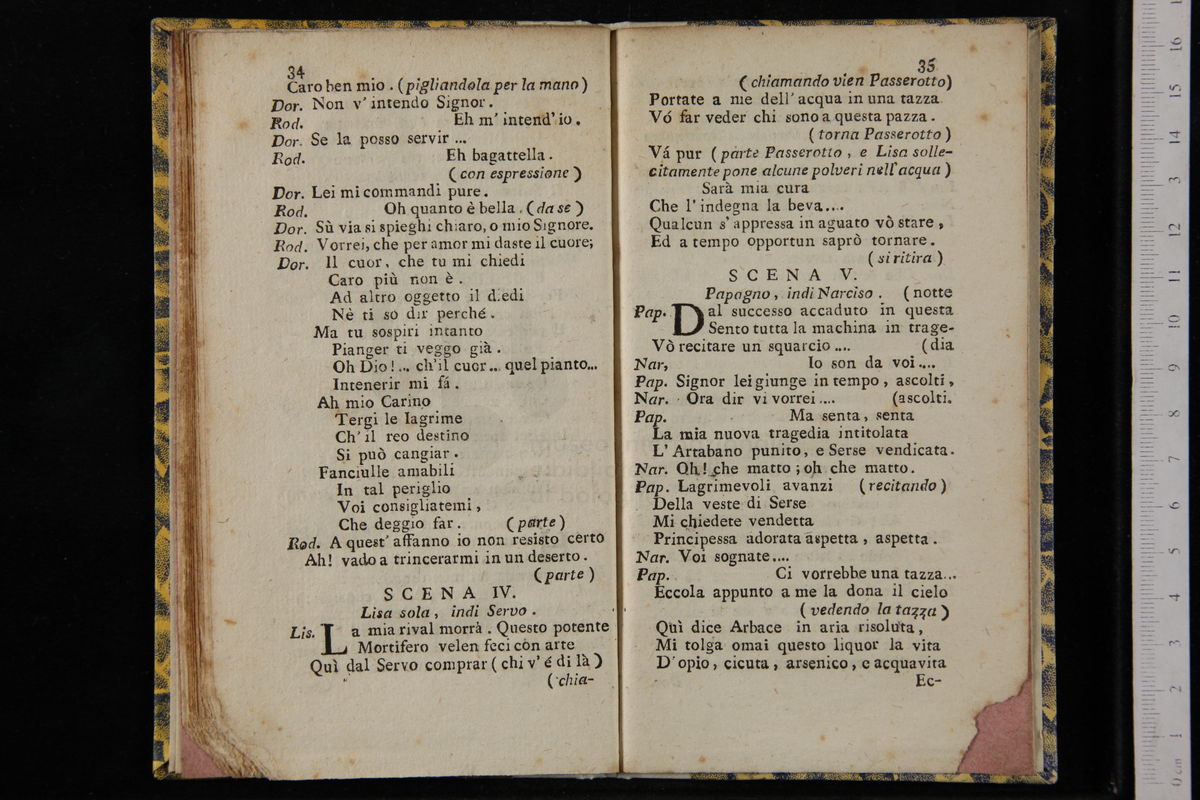 34
Caro ben mio . ( pigliandola per la mano )
Dor. Non v' intendo Signor .
Rod. Eh m' intend' io .
Dor. Se la posso servir ...
Rod. Eh bagattella .
( con espressione )
Dor. Lei mi commandi pure .
Rod. Oh quanto è bella . ( da se )
Dor. Sù via si spieghi chiaro, o mio Signore.
Rod. Vorrei, che per amor mi daste il cuore;
Dor. Il cuor, che tu mi chiedi
Caro più non è .
Ad altro oggetto il diedi
Nè ti so dir perché .
Ma tu sospiri intanto
Pianger ti veggo già .
Oh Dio ! ... ch'il cuor ... quel pianto...
Intenerir mi fá .
Ah mio Carino
Tergi le lagrime
Ch' il reo destino
Si può cangiar .
Fanciulle amabili
In tal periglio
Voi consigliatemi ,
Che deggio far . ( parte )
Rod. A quest' affanno io non resisto certo
Ah! vado a trincerarmi in un deserto .
( parte )
SCENA IV.
Lisa sola , indi Servo .
Lis. La mia rival morrà . Questo potente
Mortifero velen feci con arte
Quì dal Servo comprar ( chi v' é di là )
( chia-
35
( chiamando vien Passerotto)
Portate a me dell' acqua in una tazza
Vó far veder chi sono a questa pazza .
( torna Passerotto )
Vá pur ( parte Passerotto , e Lisa solle-
citamente pone alcune polveri nell' acqua )
Sarà mia cura
Che l' indegna la beva....
Qualcun s' appressa in aguato vò stare ,
Ed a tempo opportun saprò tornare .
( si ritira )
SCENA V.
Papagno , indi Narciso . ( notte
Pap. Dal successo accaduto in questa
Sento tutta la machina in trage-
Vò recitare un squarcio .... ( dia
Nar, Io son da voi ....
Pap. Signor lei giunge in tempo , ascolti ,
Nar. Ora dir vi vorrei .... (ascolti.
Pap. Ma senta , senta
La mia nuova tragedia intitolata
L' Artabano punito , e Serse vendicata .
Nar. Oh ! che matto ; oh che matto .
Pap. Lagrimevoli avanzi ( recitando )
Della veste di Serse
Mi chiedete vendetta
Principessa adorata aspetta , aspetta .
Nar. Voi sognate ....
Pap. Ci vorrebbe una tazza ...
Eccola appunto a me la dona il cielo
( vedendo la tazza )
Quì dice Arbace in aria risoluta ,
Mi tolga omai questo liquor la vita
D' opio , cicuta , arsenico , e acquavita
Ec-
0 cm 1 2 3 4 5 6 7 8 9 10 11 12 13 14 15 16